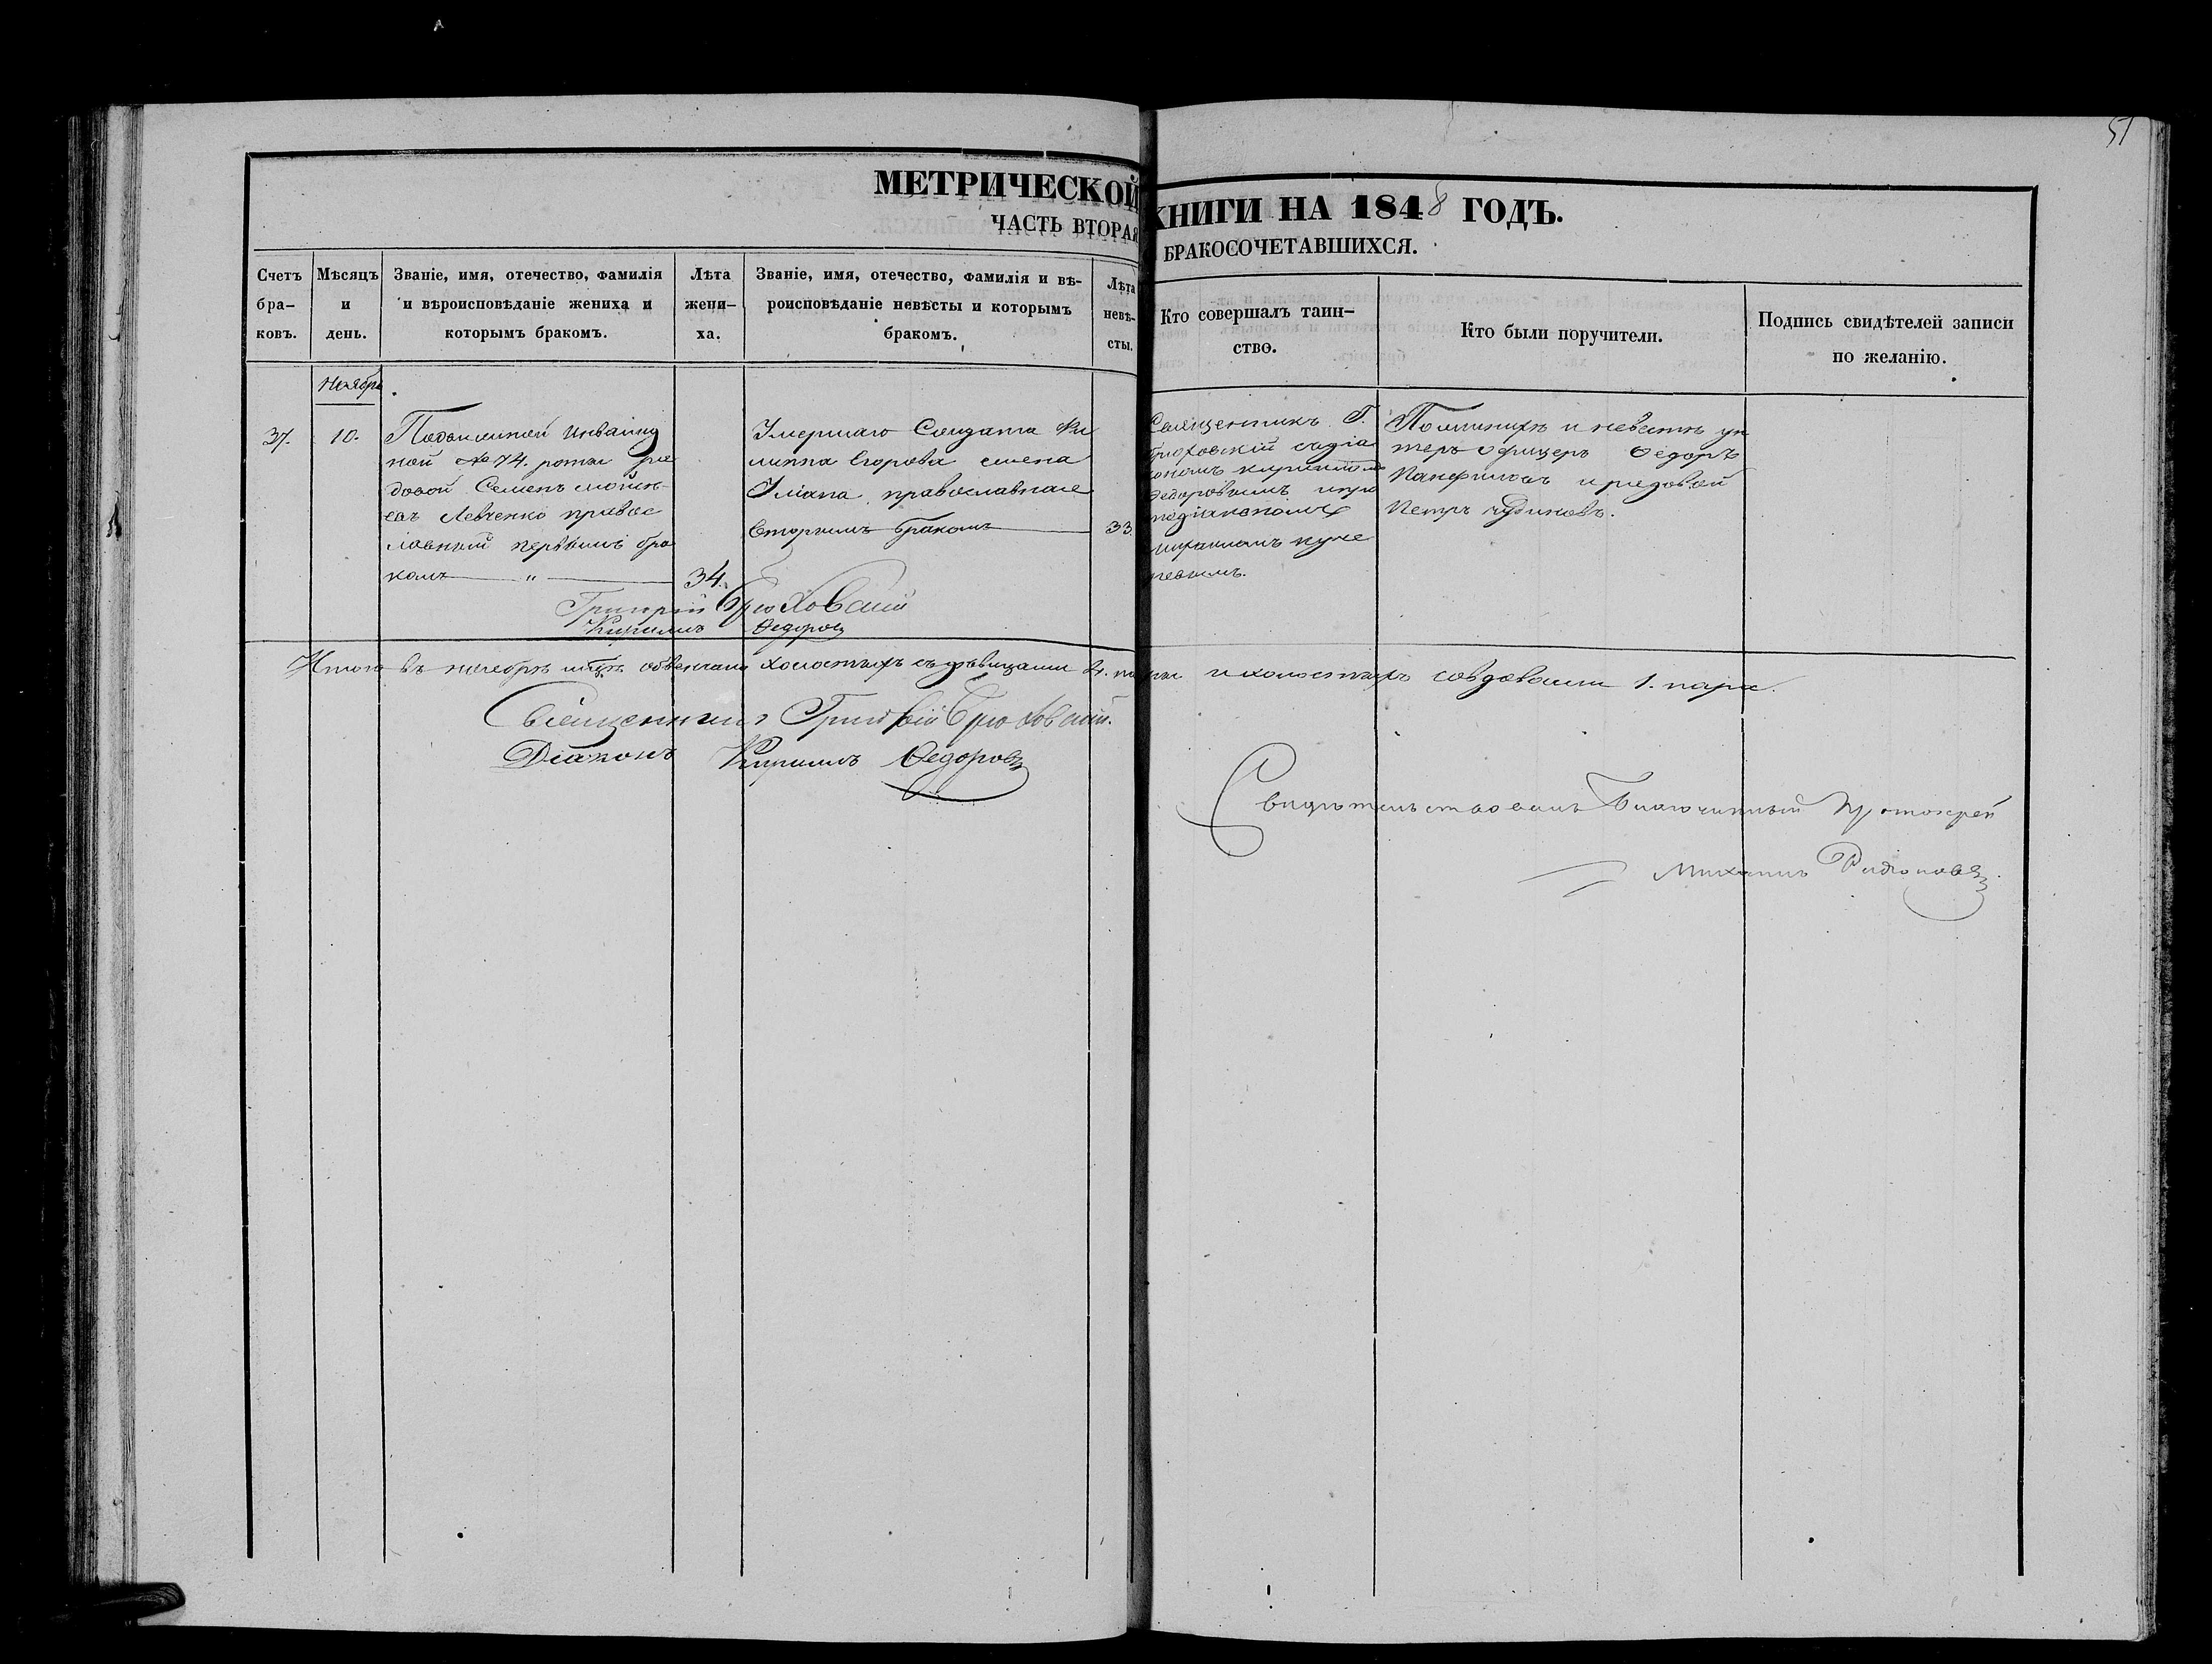 51
МЕТРИЧЕСКОЙ КНИГИ НА 1848 ГОДЪ.
ЧАСТЬ ВТОРАЯ БРАКОСОЧЕТАВШИХСЯ.
Счетъ
бра-
ковъ.
Мѣсяцъ
и
день.
Званіе, имя, отечество, фамилія
и вѣроисповѣданіе жениха и
которымъ бракомъ.
Лѣта
жени-
ха.
Званіе, имя, отечество, фамилія и вѣ-
роисповѣданіе невѣсты и которымъ
бракомъ.
Лѣта
невѣ-
сты.
Кто совершалъ таин-
ство.
Кто были поручители.
Подпись свидѣтелей записи
по желанію.
Ноябрь
37.
10.
Инвалид
ной № 74. роты ря
довой Семенъ
Левченко правос
лавный первымъ бра
комъ
34.
Умершаго Солдата Фи
липпа Егорова жена
православная
вторымъ бракомъ
33.
Священникъ Г.
Брюховскій содіа
кономъ Кириломъ
Федоровымъ
Михаиломъ
По женихѣ и невѣстѣ ун
теръ офицеръ Федоръ
Панфиловъ и рядовой
Петръ
Григорій Брюховскій
Кирилъ Федоровъ
Итого въ ноябрѣ мцѣ обвенчано холостыхъ съ дѣвицами 4. пары и холостыхъ совдовами 1. пара.
Священникъ Григорій Брюховскій.
Діаконъ Кирилъ Федоровъ
Свидѣтельствовалъ Благочинный Протоіерей
Михаилъ Родіоновъ